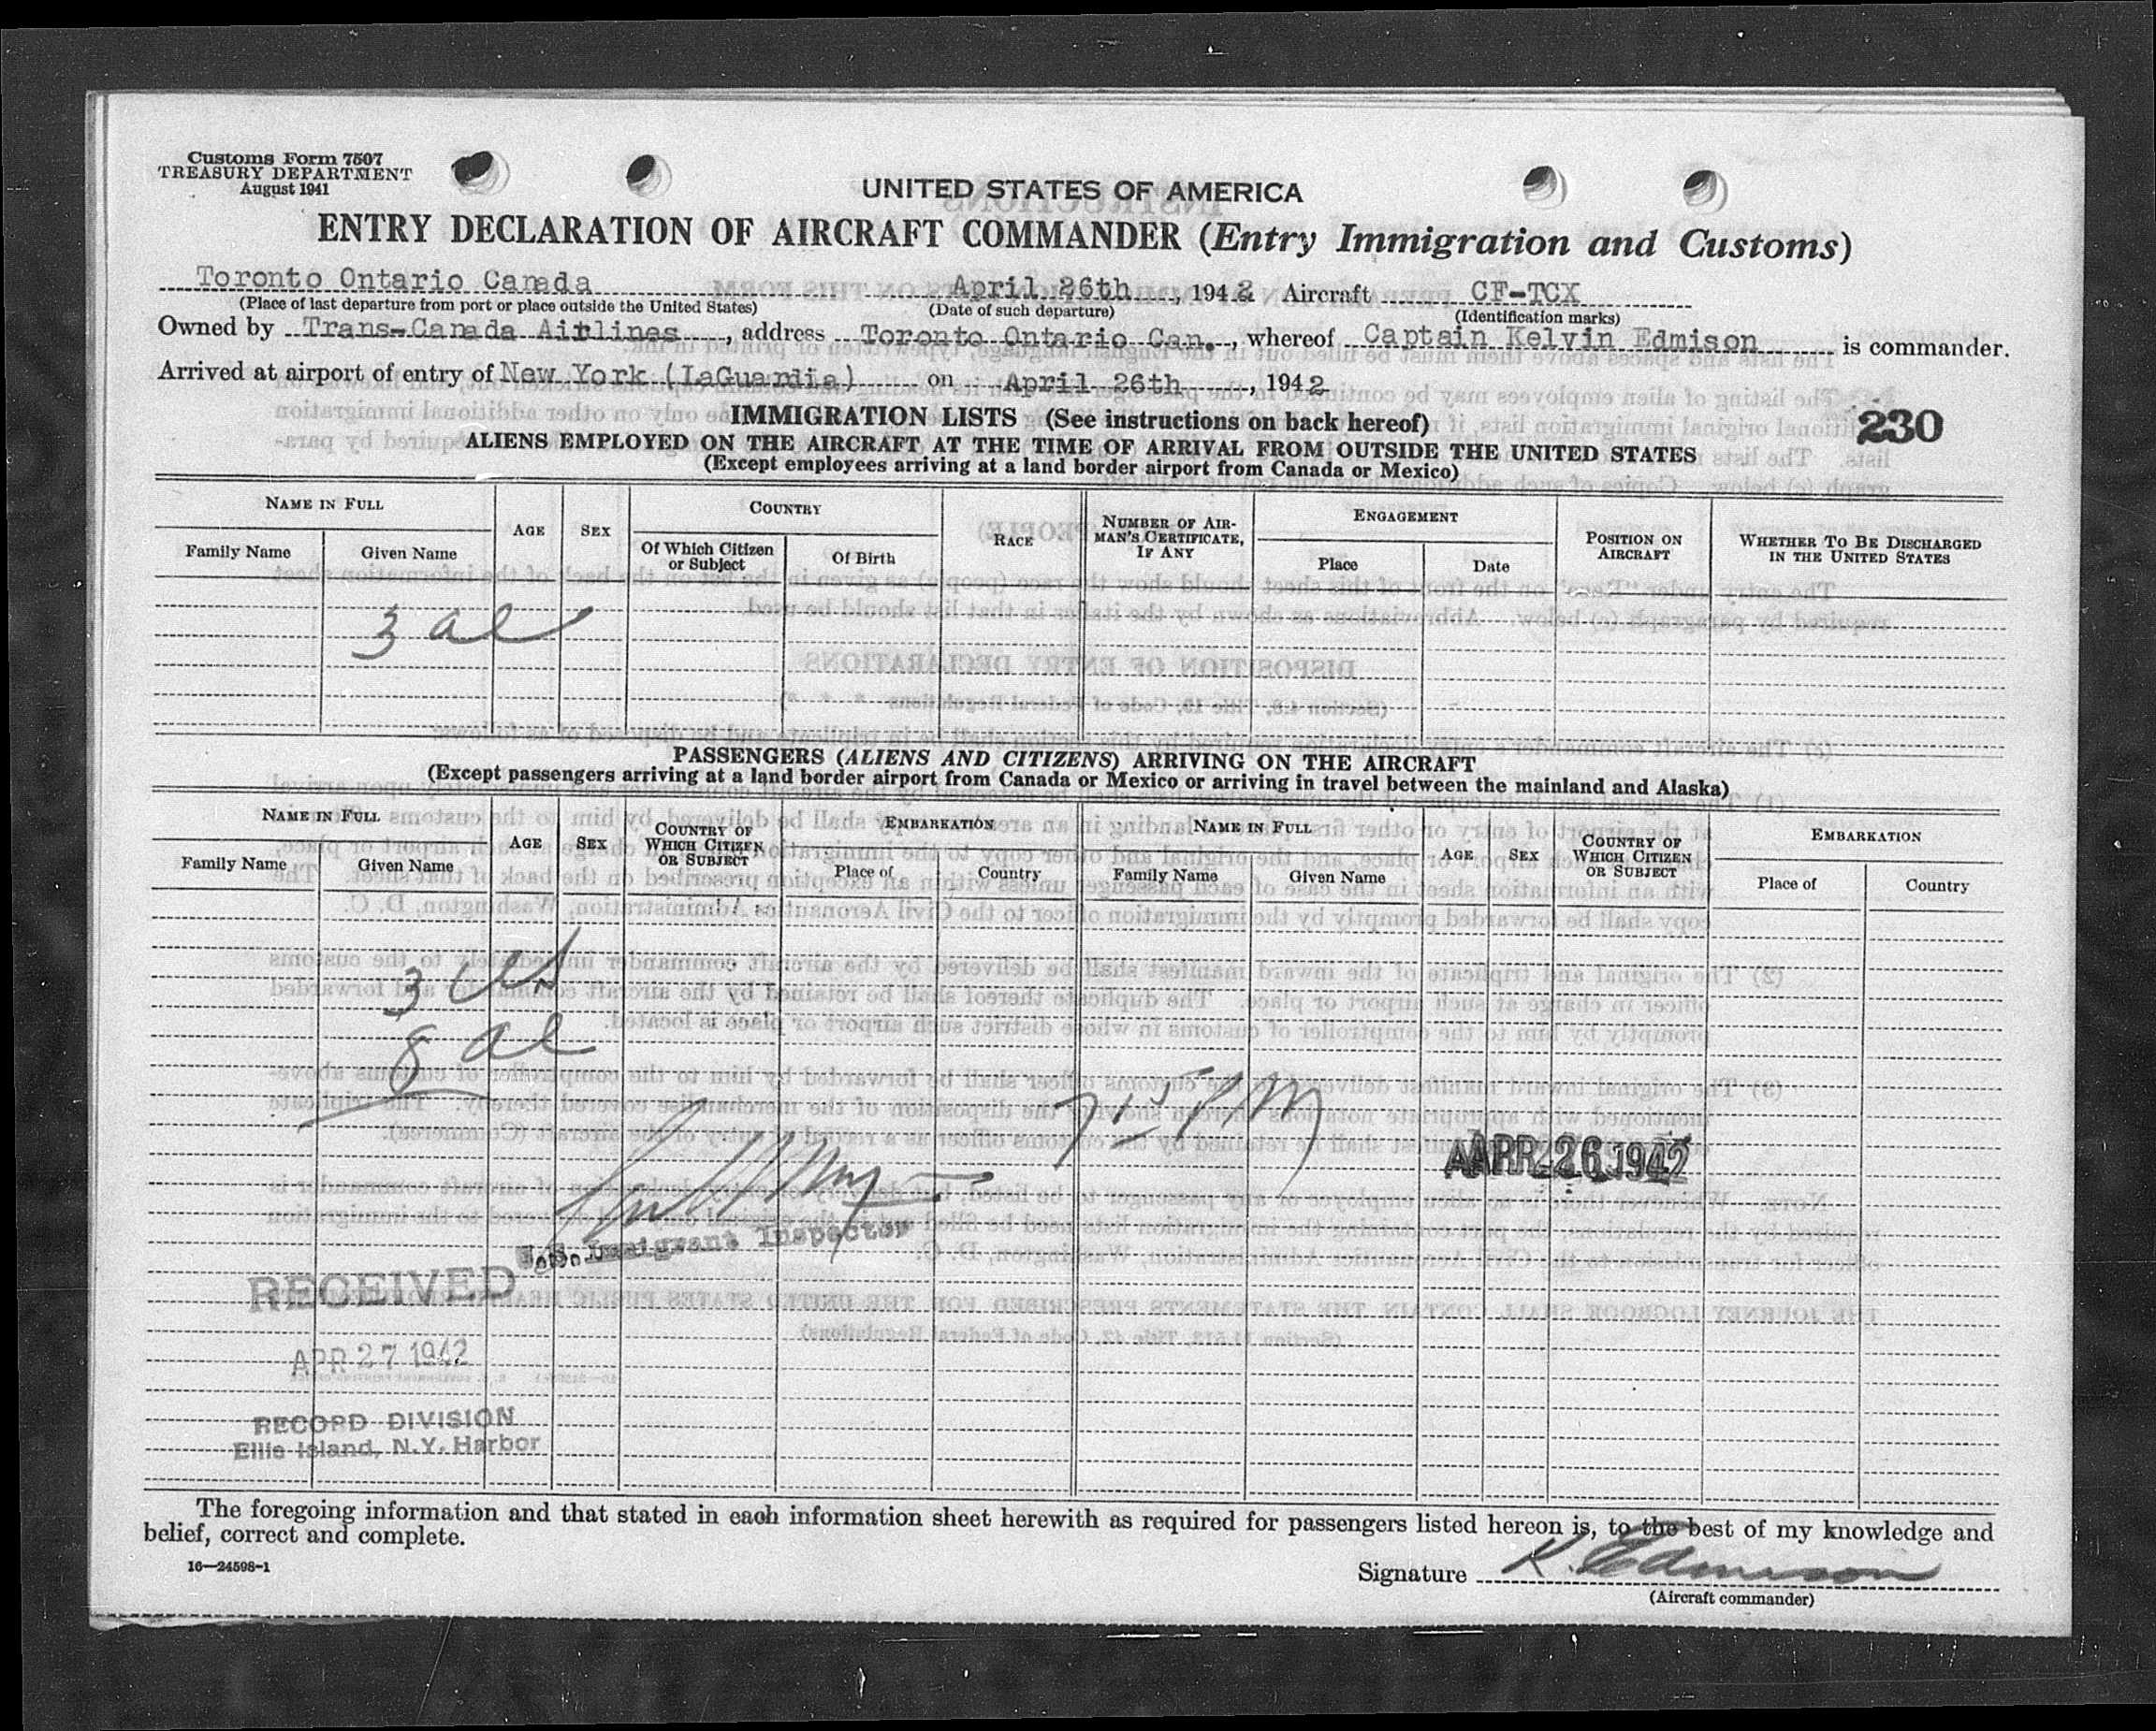 Customs Form 7507
TREASURY DEPARTMENT
August 1941
UNITED STATES OF AMERICA
ENTRY DECLARATION OF AIRCRAFT COMMANDER (Entry Immigration and Customs)
Toronto Ontario Canada April 26th, 1942 Aircraft CF-TCX
(Place of last departure from port or place outside the United States) (Date of such departure) (Identification marks)
Owned by Trans-Canada Airlines, address Toronto Ontario Can., whereof Captain Kelvin Edmison is commander.
Arrived at airport of entry of New York (LaGuardia) on April 26th, 1942
IMMIGRATION LISTS (See instructions on back hereof)
230
ALIENS EMPLOYED ON THE AIRCRAFT AT THE TIME OF ARRIVAL FROM OUTSIDE THE UNITED STATES
(Except employees arriving at a land border airport from Canada or Mexico)
NAME IN FULL AGE SEX COUNTRY RACE NUMBER OF AIRMAN'S CERTIFICATE, IF ANY ENGAGEMENT POSITION ON AIRCRAFT WHETHER TO BE DISCHARGED IN THE UNITED STATES
Family Name Given Name Of Which Citizen or Subject Of Birth Place Date
3 al
PASSENGERS (ALIENS AND CITIZENS) ARRIVING ON THE AIRCRAFT
(Except passengers arriving at a land border airport from Canada or Mexico or arriving in travel between the mainland and Alaska)
NAME IN FULL AGE SEX COUNTRY OF WHICH CITIZEN OR SUBJECT EMBARKATION NAME IN FULL AGE SEX COUNTRY OF WHICH CITIZEN OR SUBJECT EMBARKATION
Family Name Given Name Place of Country Family Name Given Name Place of Country
3
8 al
715 PM
APR 26 1942
U.S. Immigrant Inspector
RECEIVED
APR 27 1942
RECORD DIVISION
Ellis Island, N.Y. Harbor
The foregoing information and that stated in each information sheet herewith as required for passengers listed hereon is, to the best of my knowledge and
belief, correct and complete.
16—24598-1
Signature K. Edmison
(Aircraft commander)